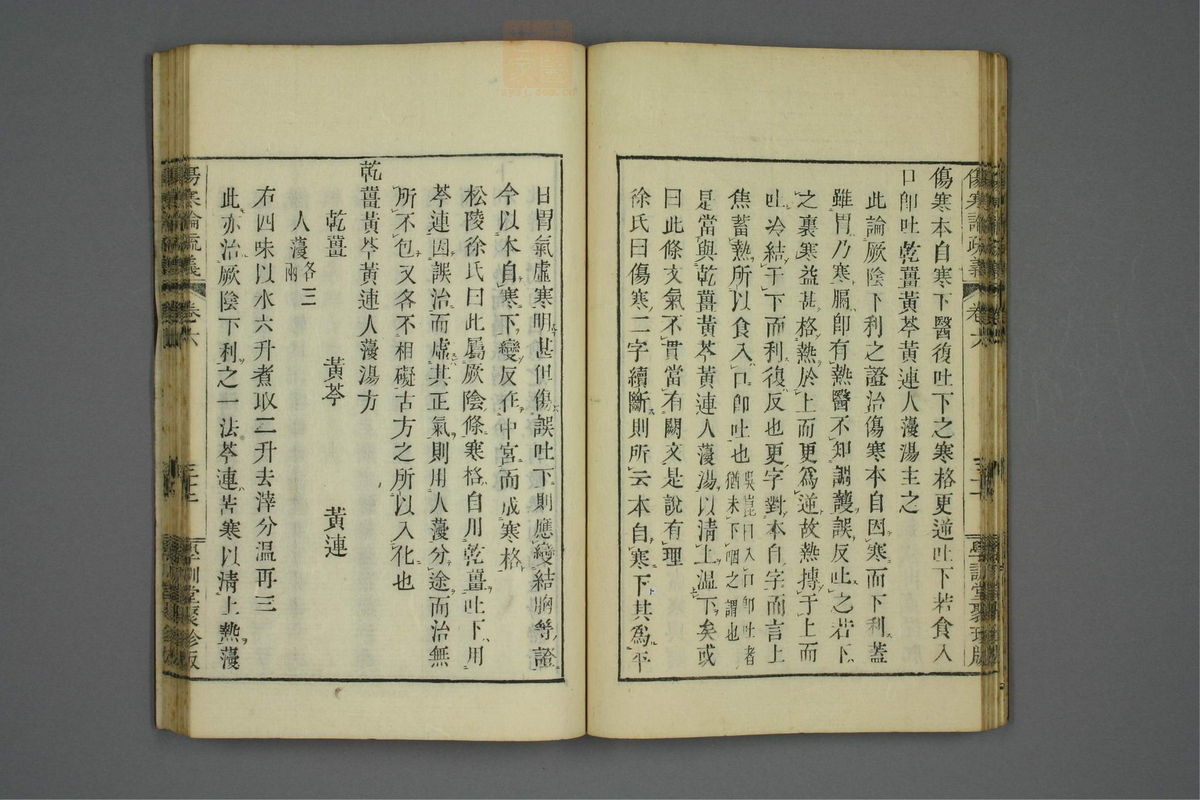 傷寒論疏義
卷六
學訓堂聚珍版
傷寒本自寒下醫復吐下之寒格更逆吐下若食入
口卽吐乾薑黃芩黃連人薓湯主之
此論厥陰下利之證治傷寒本自因寒而下利蓋
雖胃乃寒膈卽有熱醫不知調護誤反吐之若下
之裏寒益甚格熱於上而更爲逆故熱摶于上而
吐冷結于下而利復反也更字對本自字而言上
焦蓄熱所以食入口卽吐也吳崑曰入口卽吐者猶未下咽之謂也
是當與乾薑黃芩黃連人薓湯以清上温下矣或
曰此條文氣不貫當有闕文是說有理
徐氏曰傷寒二字續斷則所云本自寒下其爲平
日胃氣虛寒明甚但傷誤吐下則應變結胸等證
今以本自寒下變反在中宮而成寒格
松陵徐氏曰此屬厥陰條寒格自用乾薑吐下用
芩連因誤治而虛其正氣則用人薓分途而治無
所不包又各不相礙古方之所以入化也
乾薑黃芩黃連人薓湯方
乾薑 黃芩 黃連
人薓各三兩
右四味以水六升煮取二升去滓分温再三
此亦治厥陰下利之一法芩連苦寒以清上熱薓
傷寒論疏義
卷六
學訓堂聚珍版